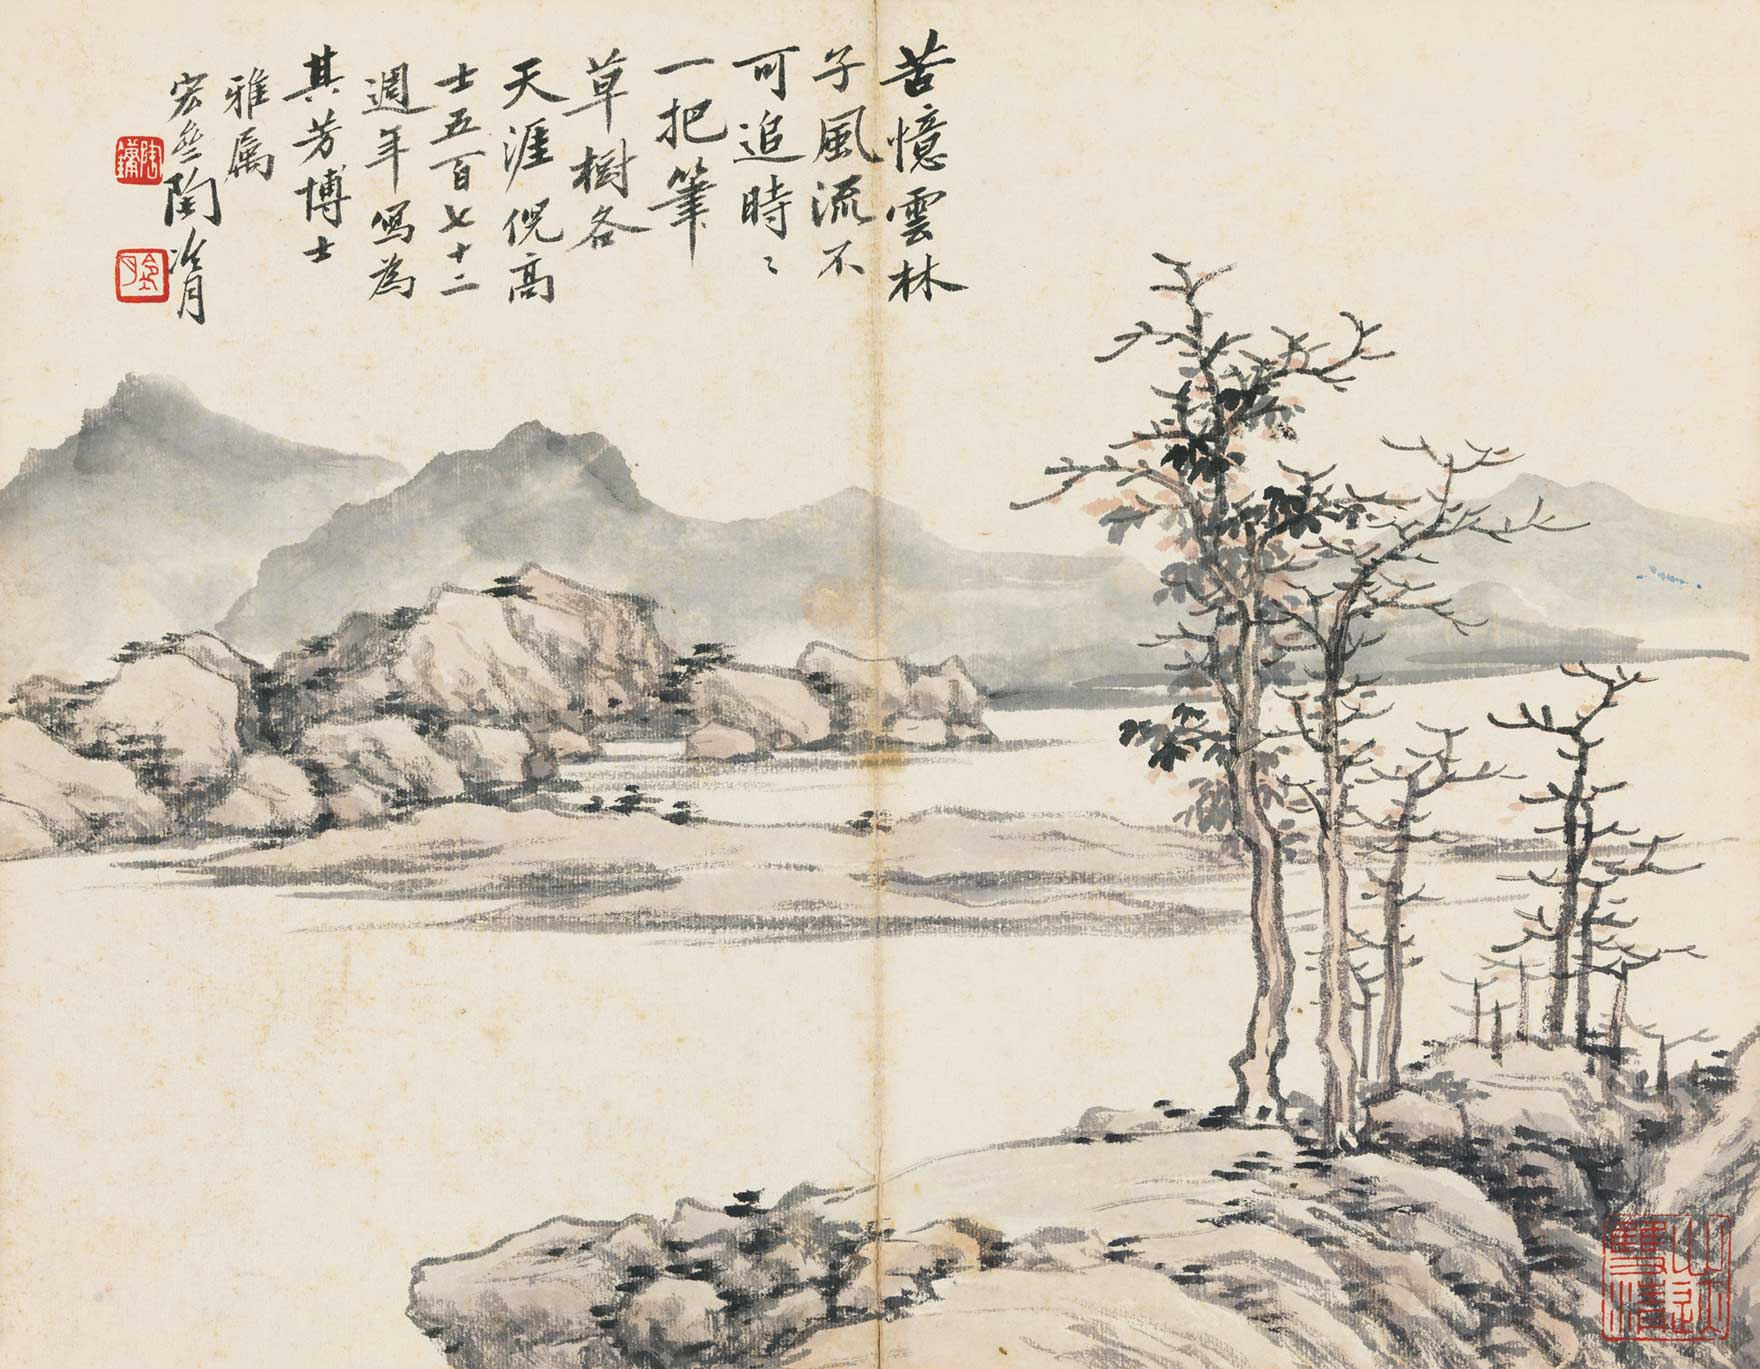 苦憶雲林
子風流不
可追時〻
一把筆
草樹各
天涯倪高
士五百七十二
週年寫為
其芳博士
雅属
宏叁陶冶月
陶鏞
冷月